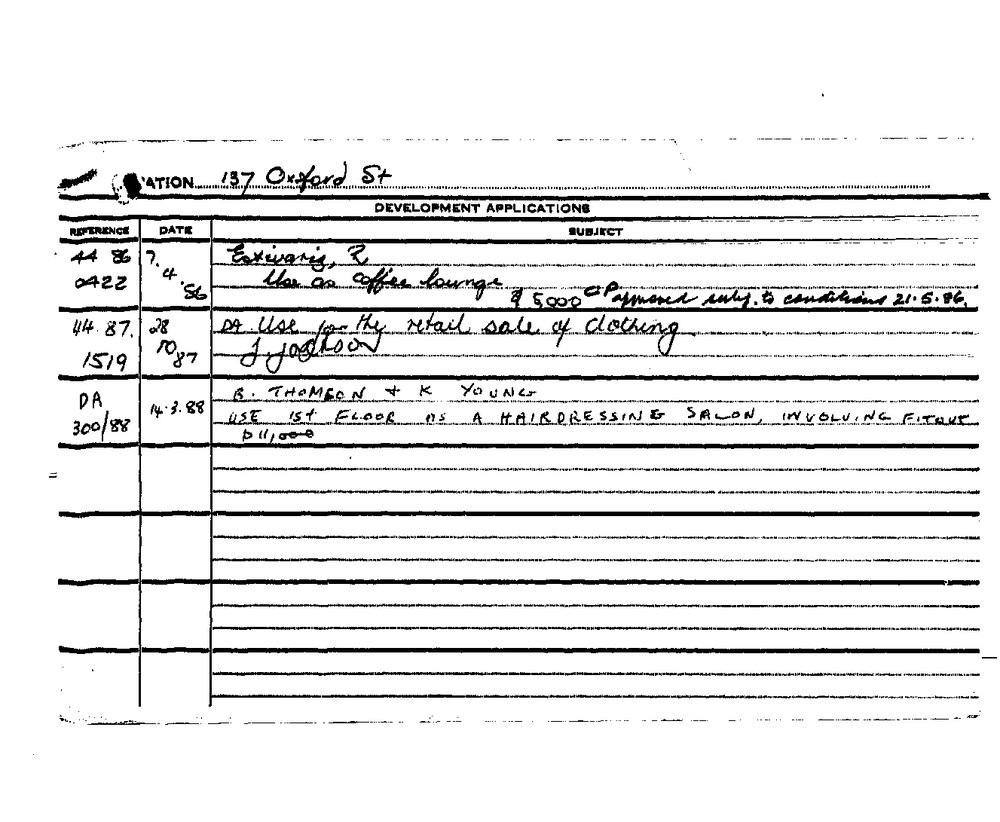 ATION 137 Oxford St
DEVELOPMENT APPLICATIONS
REFERENCE DATE SUBJECT
44 86 7. Estivariz, R
0422 4 '86 Use as coffee lounge
$5,000 Approved subj. to conditions 21.5.86.
44.87. 28 DA Use for the retail sale of clothing
1519 10 87 J.
DA 14.3.88 B. THOMSON + K YOUNG
300/88 USE 1st FLOOR AS A HAIRDRESSING SALON, INVOLVING FITOUT
$11,000